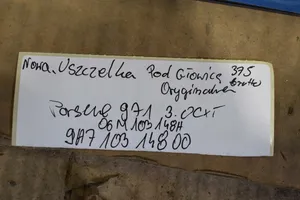 Nowa. Uszczelka Pod Głowicą 395
Oryginalna brutto
Porsche 971 3.0
06M 103 148H
9A7 103 148 00